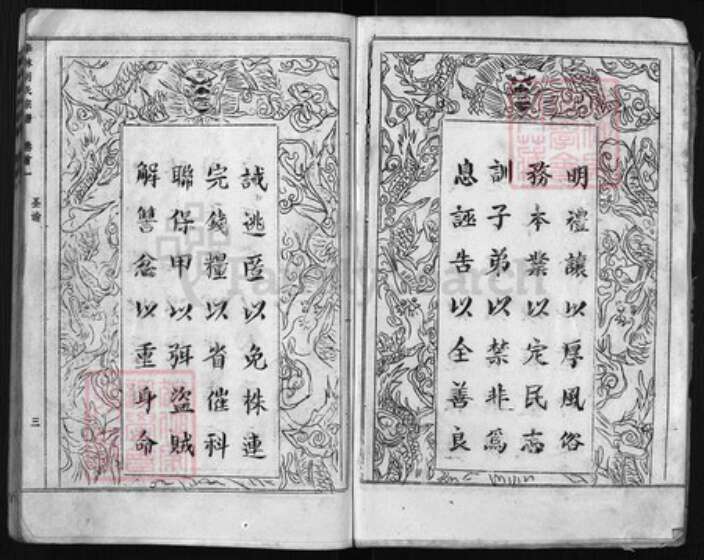 明禮讓以厚風俗
務本業以定民志
訓子弟以禁非為
息誣告以全善良
誡逃匿以免株連
完錢糧以省催科
聯保甲以弭盜賊
解讐忿以重身命
聖諭
三
FamilySearch